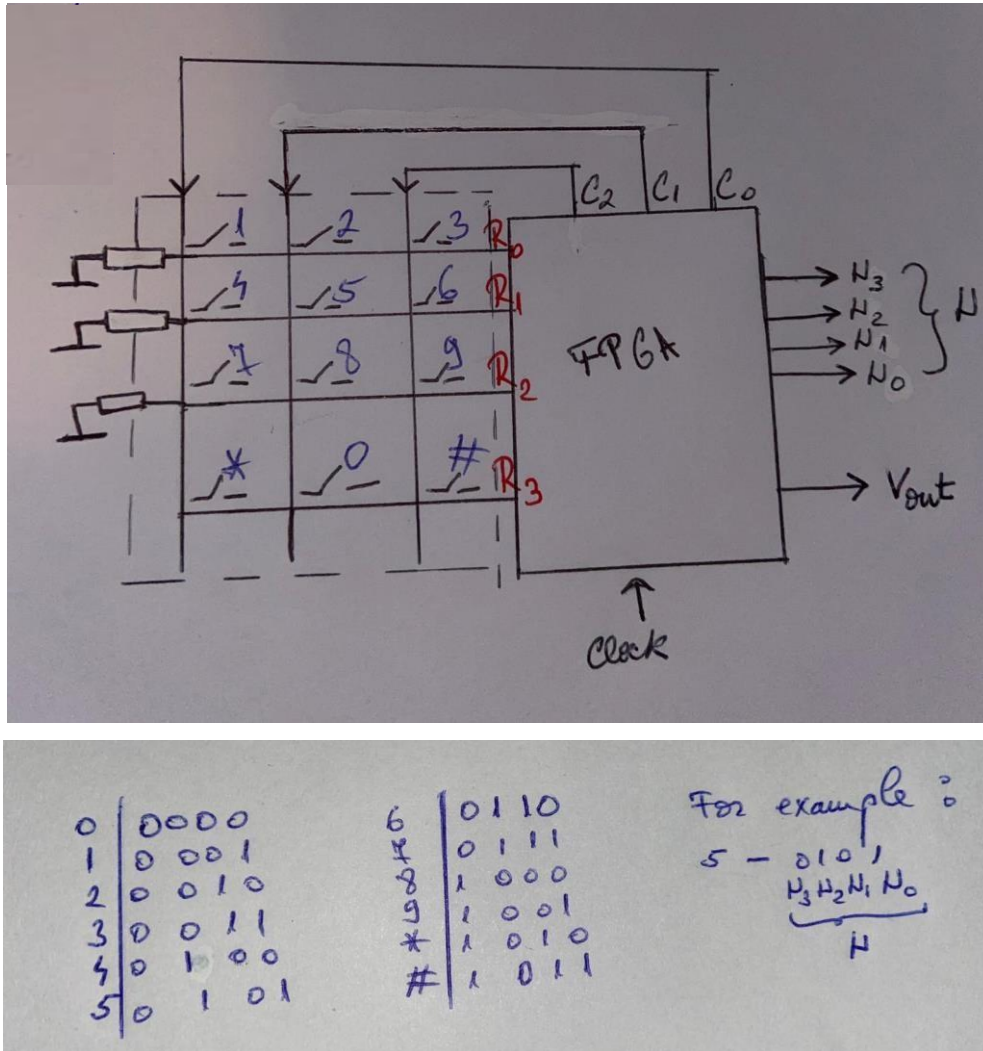 C2 C1 C0
1 2 3 R0
4 5 6 R1
7 8 9 R2
* 0 # R3
FPGA
N3
N2
N1
N0
N
Vout
Clock
0 | 0000
1 | 0001
2 | 0010
3 | 0011
4 | 0100
5 | 0101
6 | 0110
7 | 0111
8 | 1000
9 | 1001
* | 1010
# | 1011
For example :
5 - 0101
N3 N2 N1 N0
N